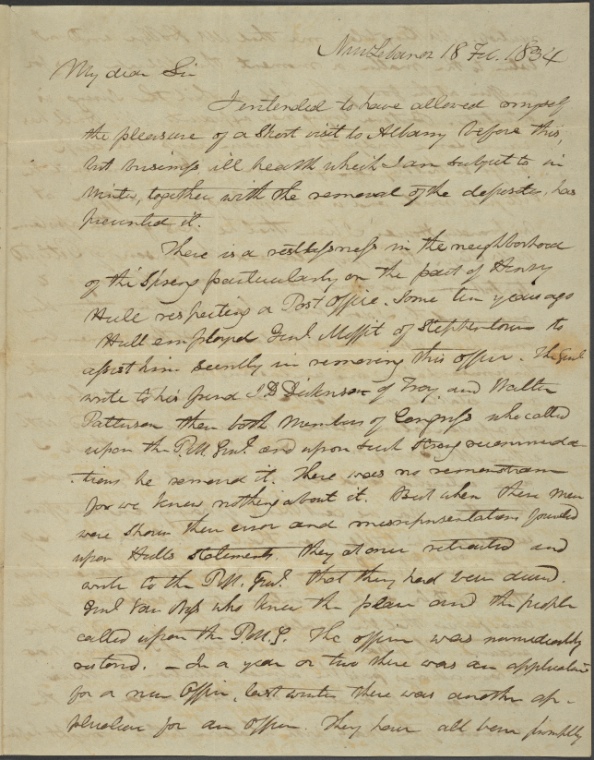 New Lebanon 18 Feb. 1834
My dear Sir
I intended to have allowed myself
the pleasure of a short visit to Albany before this,
but business ill health which I am subject to in
winter, together with the removal of the deposites, has
prevented it.
There is a restlessness in the neighborhood
of the Spring particularly on the part of Henry
Hull respecting a Post Office. Some ten years ago
Hull employed Genl. Moffit of Stephentown to
assist him secretly in removing this office. The Genl
wrote to his friend J D Dickinson of Troy and Walter
Patterson then both Members of Congress who called
upon the P.M. Genl. and upon such strong recommenda-
tions he removed it. There was no remonstrance
for we knew nothing about it. But when these men
were shown their error and misrepresentations founded
upon Hulls statements they at once retracted and
wrote to the P.M. Genl. that they had been deceived.
Genl Van Ness who knew the place and the people
called upon the P.M.G. The office was immediately
restored. – In a year or two there was an application
for a new Office, last winter there was another ap-
plication for an Office. They have all been promptly